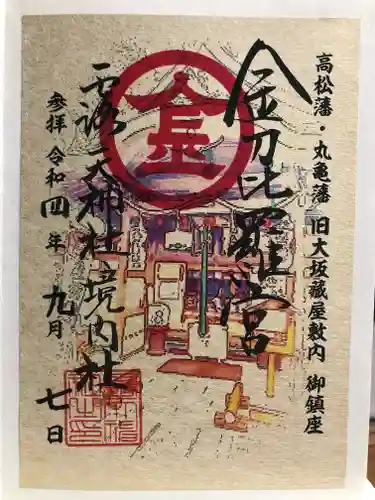 高松藩・丸亀藩 旧大坂蔵屋敷内 御鎮座
金刀比羅宮
金
露天神社境内社
参拝 令和四年 九月 七日